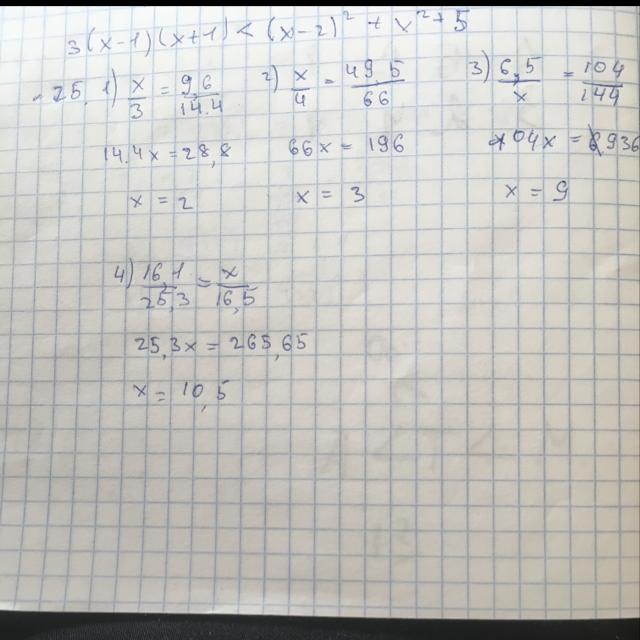 3(x-1)(x+1) < (x-2)² + x² + 5
25. 1) x/3 = 9,6/14.4 2) x/4 = 49,5/66 3) 6,5/x = 104/144
14.4x = 28,8 66x = 196 104x = 936
x = 2 x = 3 x = 9
4) 16,1/25,3 = x/16,5
25,3x = 265,65
x = 10,5